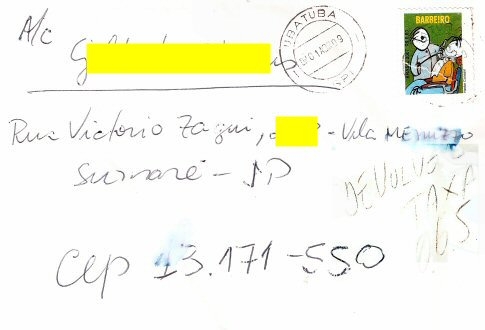 A/c
UBATUBA
BARBEIRO
Rua Victorio Zagui, - Vila Menuzzo
Sumaré - SP
DEVOLVE
TAXA
Cep 13.171-550